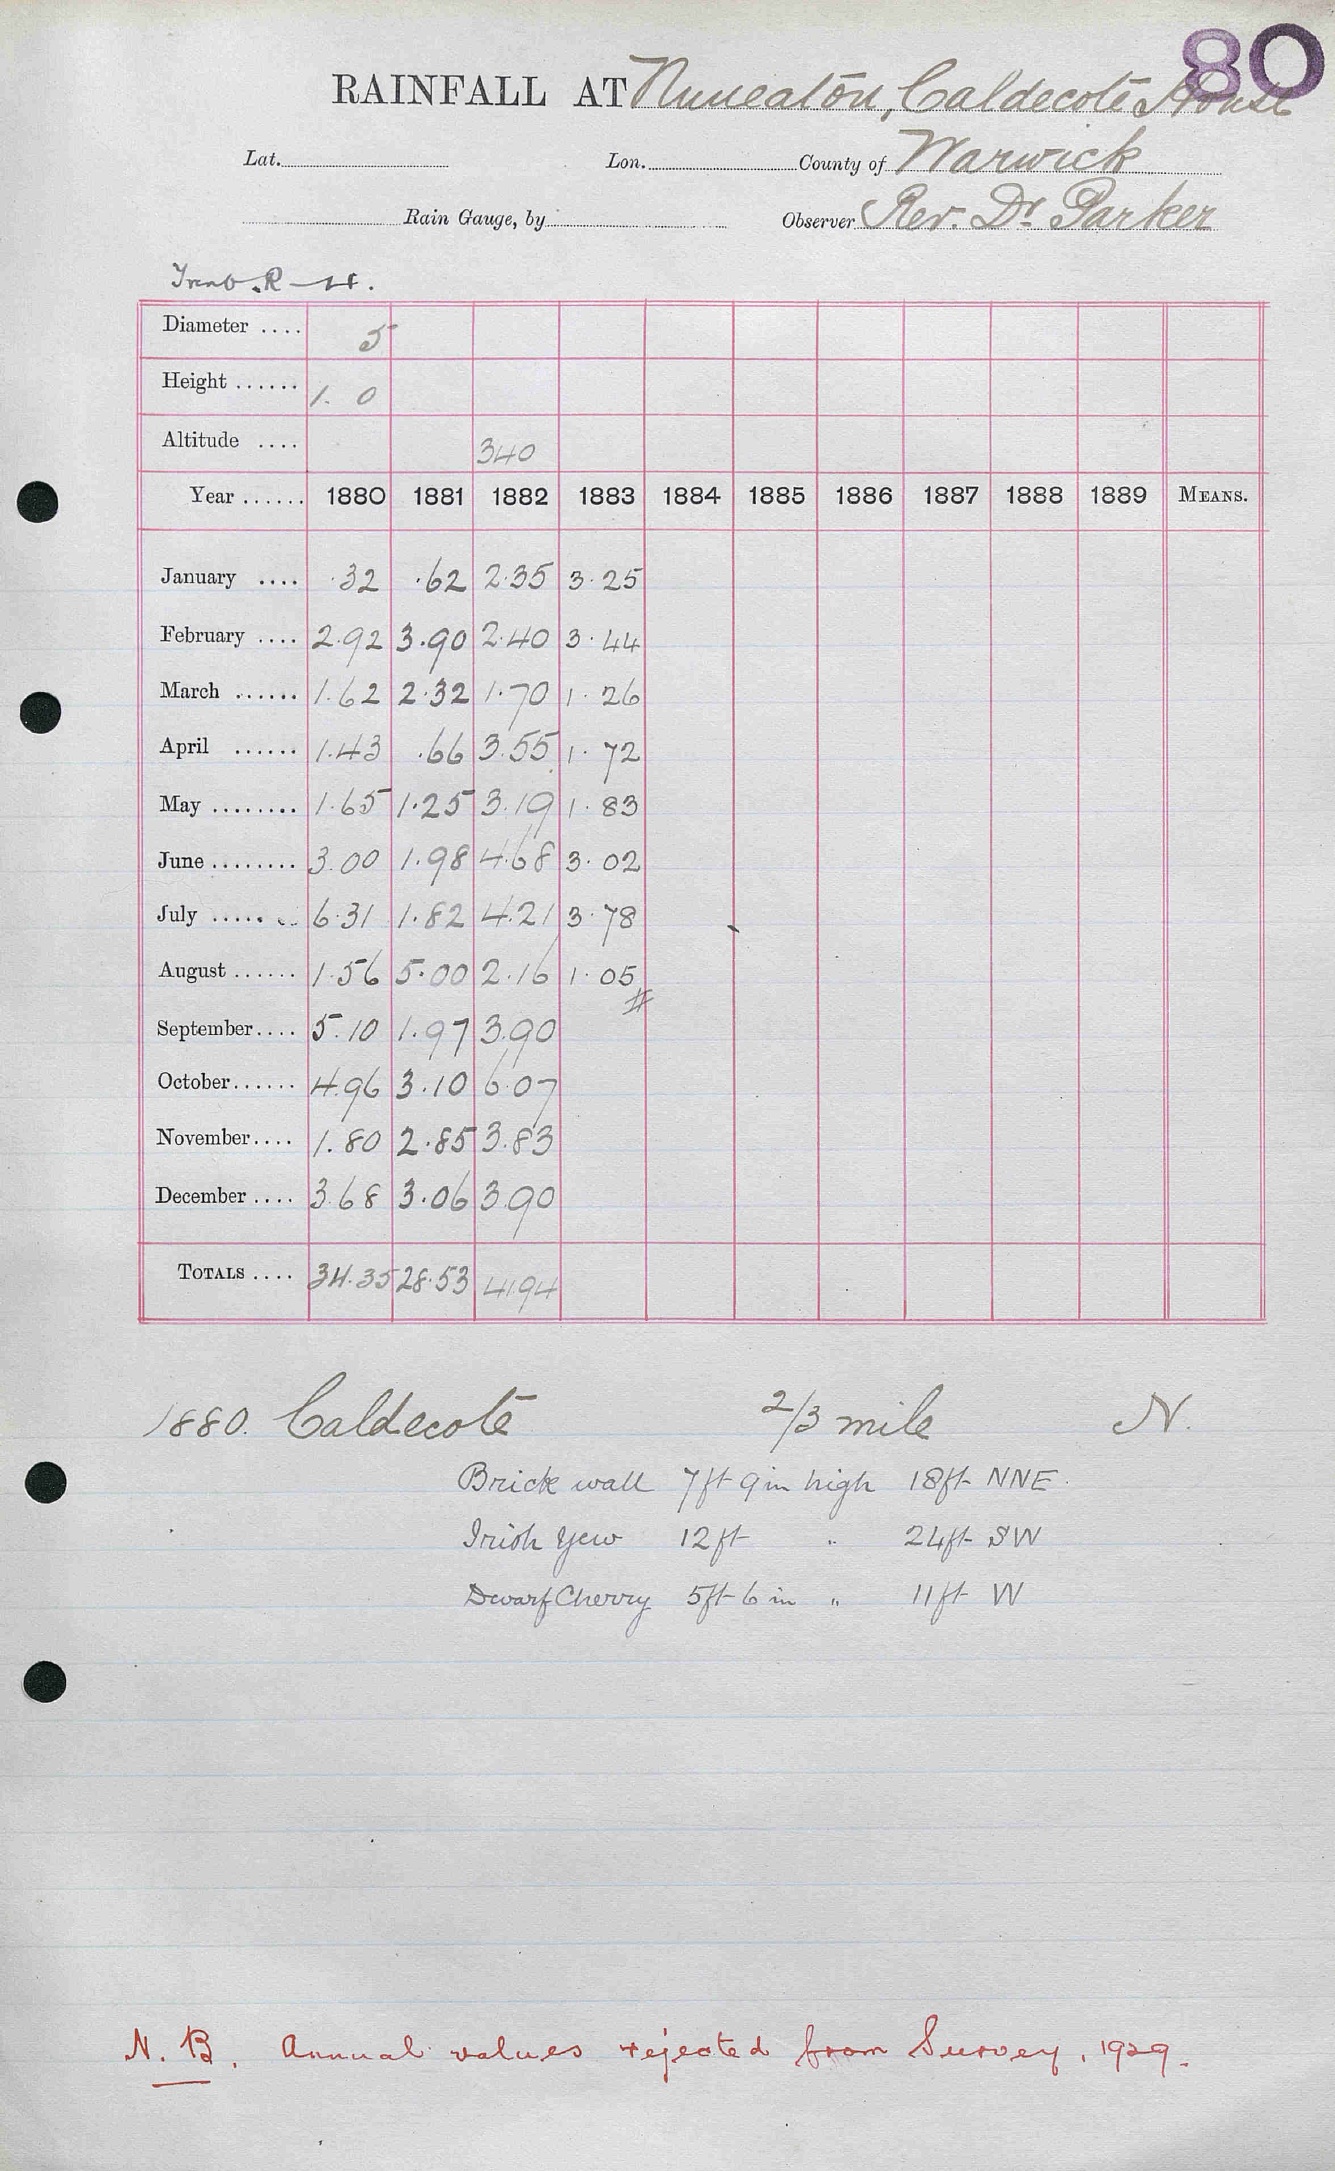 80
RAINFALL AT Nuneaton, Caldecote House
Lat. Lon. County of Warwick
Rain Gauge, by Observer Rev. Dr. Parker
Diameter .... 5
Height ...... 1. 0
Altitude .... 340
Year ...... 1880 1881 1882 1883 1884 1885 1886 1887 1888 1889 MEANS.
January .... .32 .62 2.35 3.25
February .... 2.92 3.90 2.40 3.44
March ...... 1.62 2.32 1.70 1.26
April ...... 1.43 .66 3.55 1.72
May ........ 1.65 1.25 3.19 1.83
June ........ 3.00 1.98 4.68 3.02
July ...... 6.31 1.82 4.21 3.78
August ...... 1.56 5.00 2.16 1.05
September.... 5.10 1.97 3.90
October...... 4.96 3.10 6.07
November.... 1.80 2.85 3.83
December .... 3.68 3.06 3.90
TOTALS .... 34.35 28.53 41.94
1880. Caldecote 2/3 mile N.
Brick wall 7ft 9in high 18ft NNE.
Irish Yew 12ft " 24ft SW
Dwarf Cherry 5ft 6 in " 11ft W
N. B. Annual values rejected from Survey, 1929.